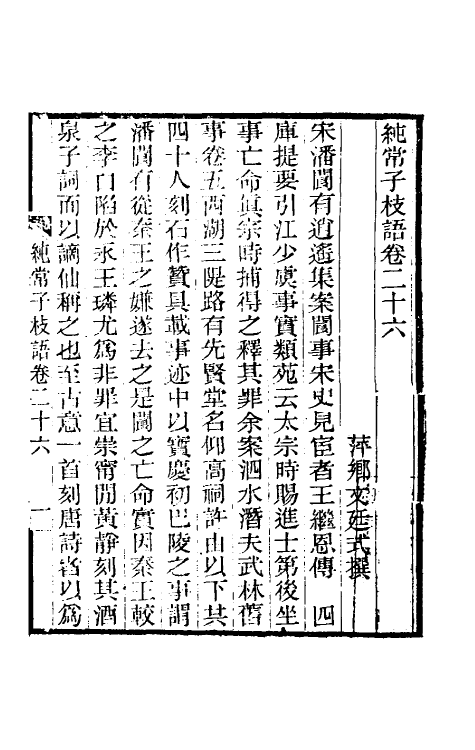 純常子枝語卷二十六
萍鄉文廷式撰
宋潘閬有逍遙集案閬事宋史見宦者王繼恩傳　四
庫提要引江少虞事寶類苑云太宗時賜進士第後坐
事亡命真宗時捕得之釋其罪余案泗水潛夫武林舊
事卷五西湖三隄路有先賢堂名仰高祠許由以下共
四十人刻石作贊具載事迹中以寶慶初巴陵之事謂
潘閬有從秦王之嫌遂去之是閬之亡命實因秦王較
之李白陷於永王璘尤為非罪宜崇甯閒黃靜刻其酒
泉子詞而以謫仙稱之也至古意一首刻唐詩者以為
純常子枝語卷二十六
一